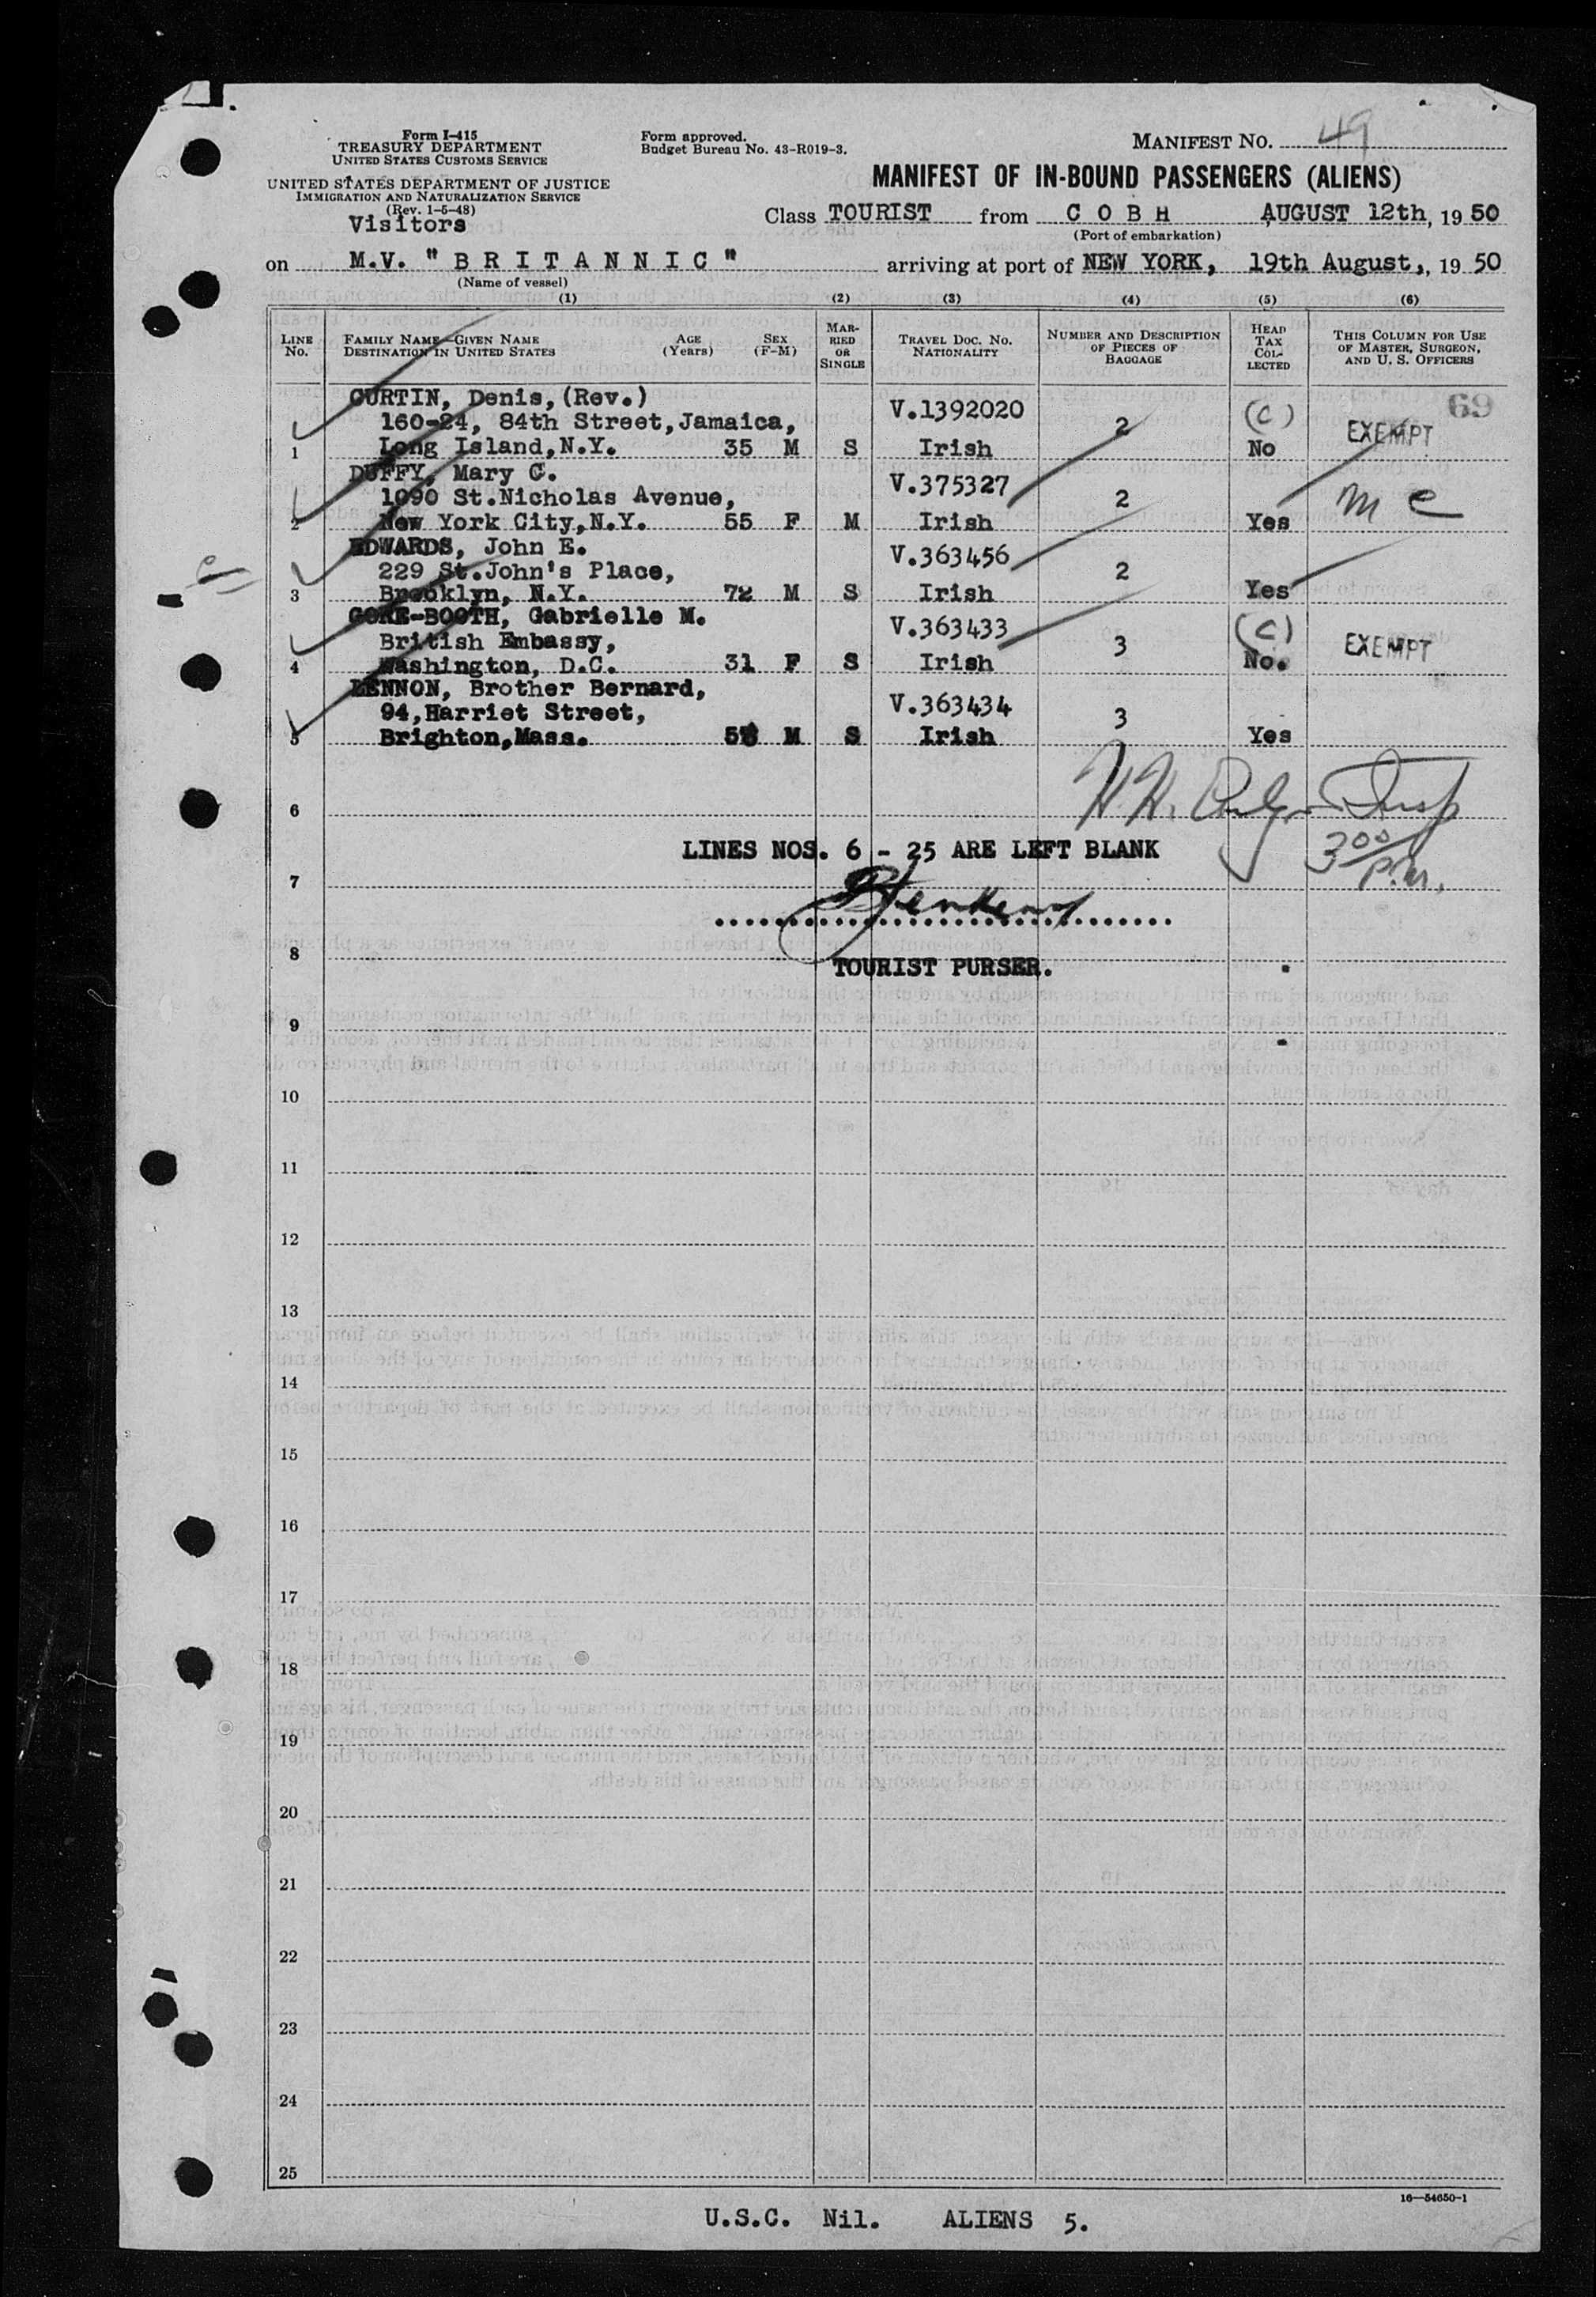 Form I-415
TREASURY DEPARTMENT
UNITED STATES CUSTOMS SERVICE
UNITED STATES DEPARTMENT OF JUSTICE
IMMIGRATION AND NATURALIZATION SERVICE
(Rev. 1-5-48)
Visitors
Form approved.
Budget Bureau No. 43-R019-3.
MANIFEST NO. 49
MANIFEST OF IN-BOUND PASSENGERS (ALIENS)
Class TOURIST from C O B H AUGUST 12th, 19 50
(Port of embarkation)
on M.V. "B R I T A N N I C" arriving at port of NEW YORK, 19th August,, 19 50
(Name of vessel)
(1) (2) (3) (4) (5) (6)
LINE No. FAMILY NAME—GIVEN NAME DESTINATION IN UNITED STATES AGE (Years) SEX (F-M) MARRIED OR SINGLE TRAVEL DOC. NO. NATIONALITY NUMBER AND DESCRIPTION OF PIECES OF BAGGAGE HEAD TAX COLLECTED THIS COLUMN FOR USE OF MASTER, SURGEON, AND U. S. OFFICERS
69
CURTIN, Denis, (Rev.)
160-24, 84th Street, Jamaica, V.1392020 2 (C) EXEMPT
1 Long Island, N.Y. 35 M S Irish No
DUFFY, Mary C.
1090 St.Nicholas Avenue, V.375327 2 m e
2 New York City, N.Y. 55 F M Irish Yes
EDWARDS, John E.
229 St.John's Place, V.363456 2
3 Brooklyn, N.Y. 72 M S Irish Yes
GORE-BOOTH, Gabrielle M.
British Embassy, V.363433 3 (C) EXEMPT
4 Washington, D.C. 31 F S Irish No.
LENNON, Brother Bernard,
94, Harriet Street, V.363434 3
5 Brighton, Mass. M S Irish Yes
H.H. Insp
6
3 00 P.M.
LINES NOS. 6 - 25 ARE LEFT BLANK
7
8
TOURIST PURSER.
9
10
11
12
13
14
15
16
17
18
19
20
21
22
23
24
25
16—54650-1
U.S.C. Nil. ALIENS 5.